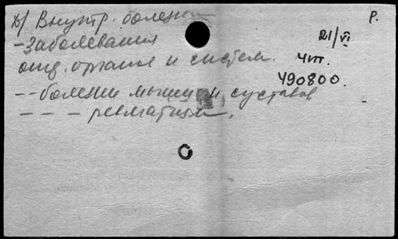 в/ Внутр. болезни Р.
- Заболевания 21/VI
отд. органов и систем. Чит.
490800.
-- болезни мышц и суставов
- - - ревматизм.